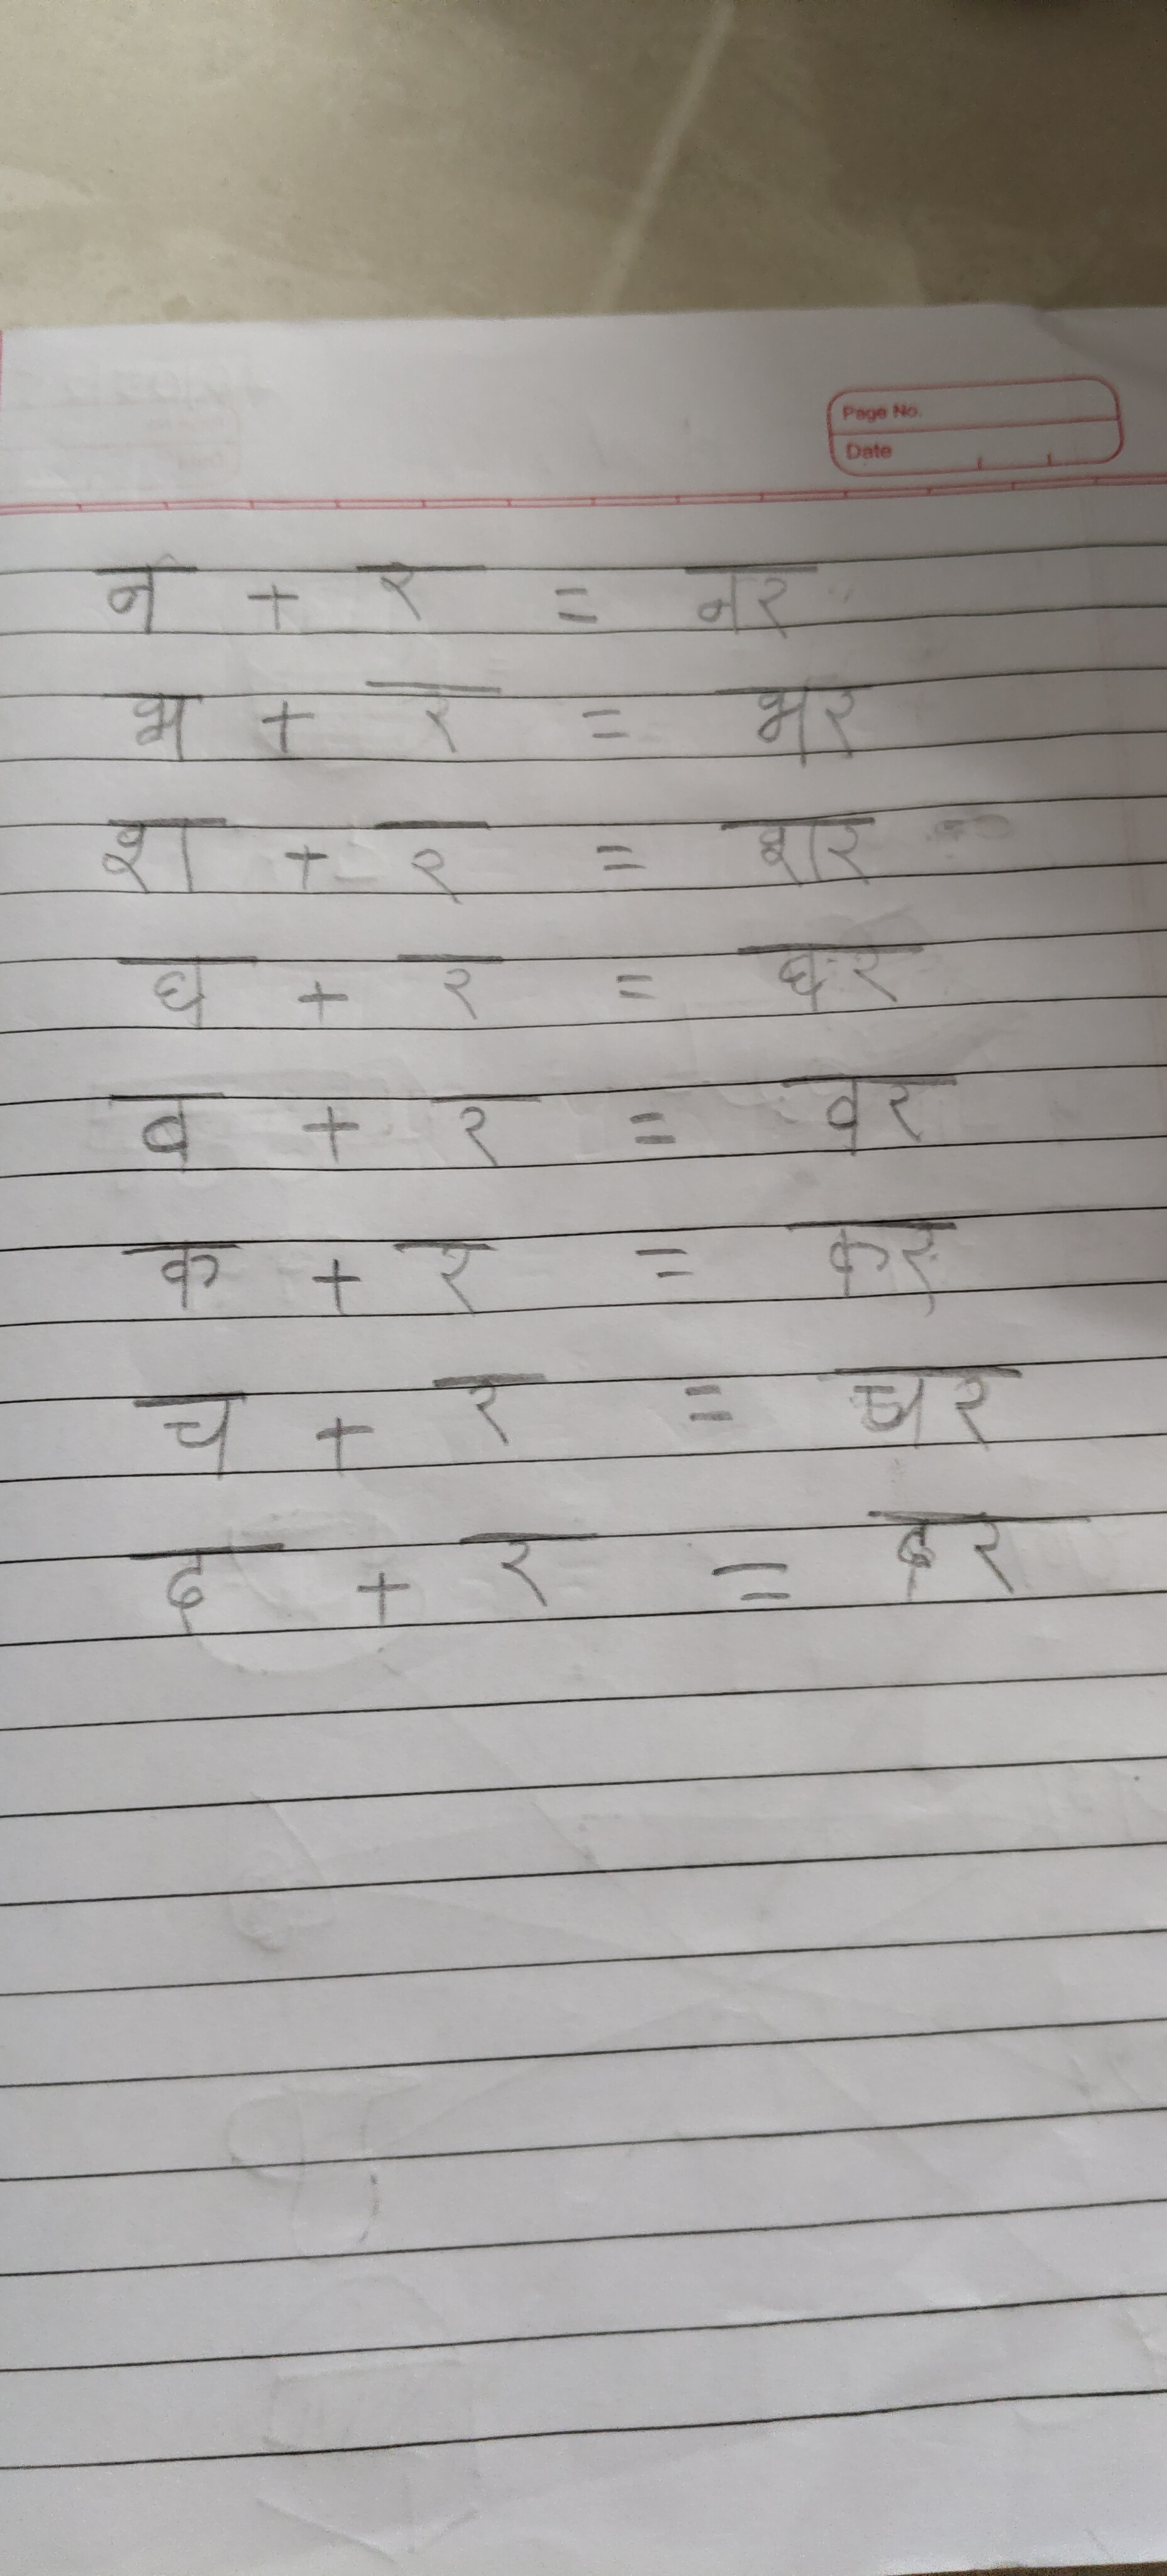 Page No.
Date
न + र = नर
भ + र = भर
श + र = शर
घ + र = घर
व + र = वर
क + र = कर
च + र = चर
द + र = दर